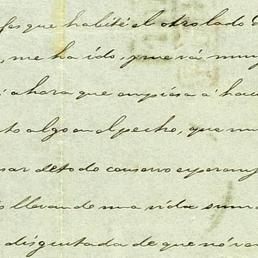 que habité el otro lado
me ha ido, pues vá muy
ahora que empiesa á hac
to algo en el pecho, que mu
sar de todo conservo esperanz
llevan de una vida suma
disgustada de que nó ve